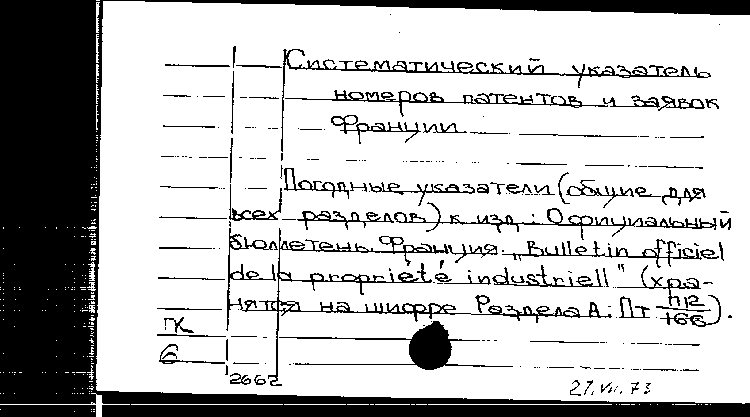 Систематический указатель
номеров патентов и заявок
Франции
Погодные указатели (общие для
всех разделов) к изд.: Официальный
бюллетень. Франция. „Bulletin officiel
de la propriété industriell" (хра-
нятся на шифре Раздела А: Пт П12/166).
ГК
6
2662
27.VII.73